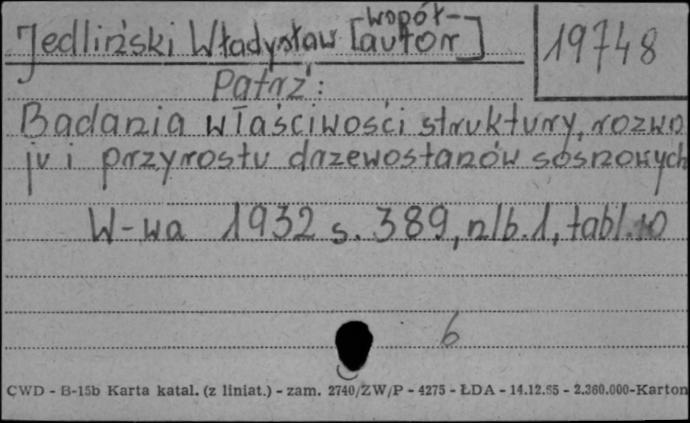 Jedliński Władysław [współ-
autor]
19748
Patrz:
Badania właściwości struktury, rozwo
ju i przyrostu drzewostanów sosnowych
W-wa 1932 s. 389, nlb. 1, tabl. 10
6
CWD - B-15b Karta katal. (z liniat.) - zam. 2740/ZW/P - 4275 - ŁDA - 14.12.55 - 2.360.000-Karton